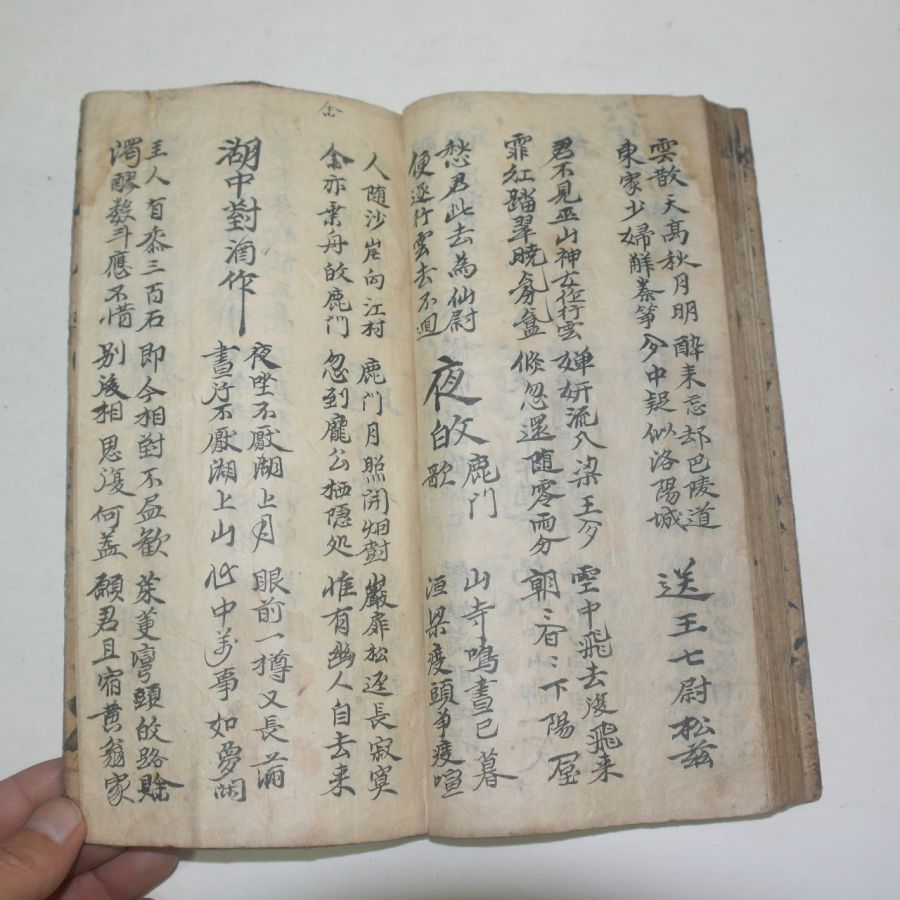 雲散天高秋月明
東家少婦解秦箏
醉来忘却巴陵道
夕中疑似洛陽城
送王七尉松茲
君不見巫山神女作行雲
霏紅踏翠曉氛氳
嬋妍流入梁王夕
倏忽還随零雨分
空中飛去復飛来
朝〻暮〻下陽臺
愁君此去為仙尉
便逐行雲去不迴
夜皈鹿門歌
山寺鳴晝已暮
渔梁渡頭争渡喧
人随沙岸向江村
余亦乘舟皈鹿門
鹿門月照開烟樹
忽到龐公栖隠処
巖扉松逕長寂寞
惟有幽人自去来
余
湖中對酒作
夜坐不厭湖上月
晝行不厭湖上山
眼前一樽又長滿
心中万事如夢閑
主人有黍三百石
濁醪数斗應不惜
即今相對不盡歡
別後相思復何益
茱萸灣頭皈路賒
願君且宿黄翁家